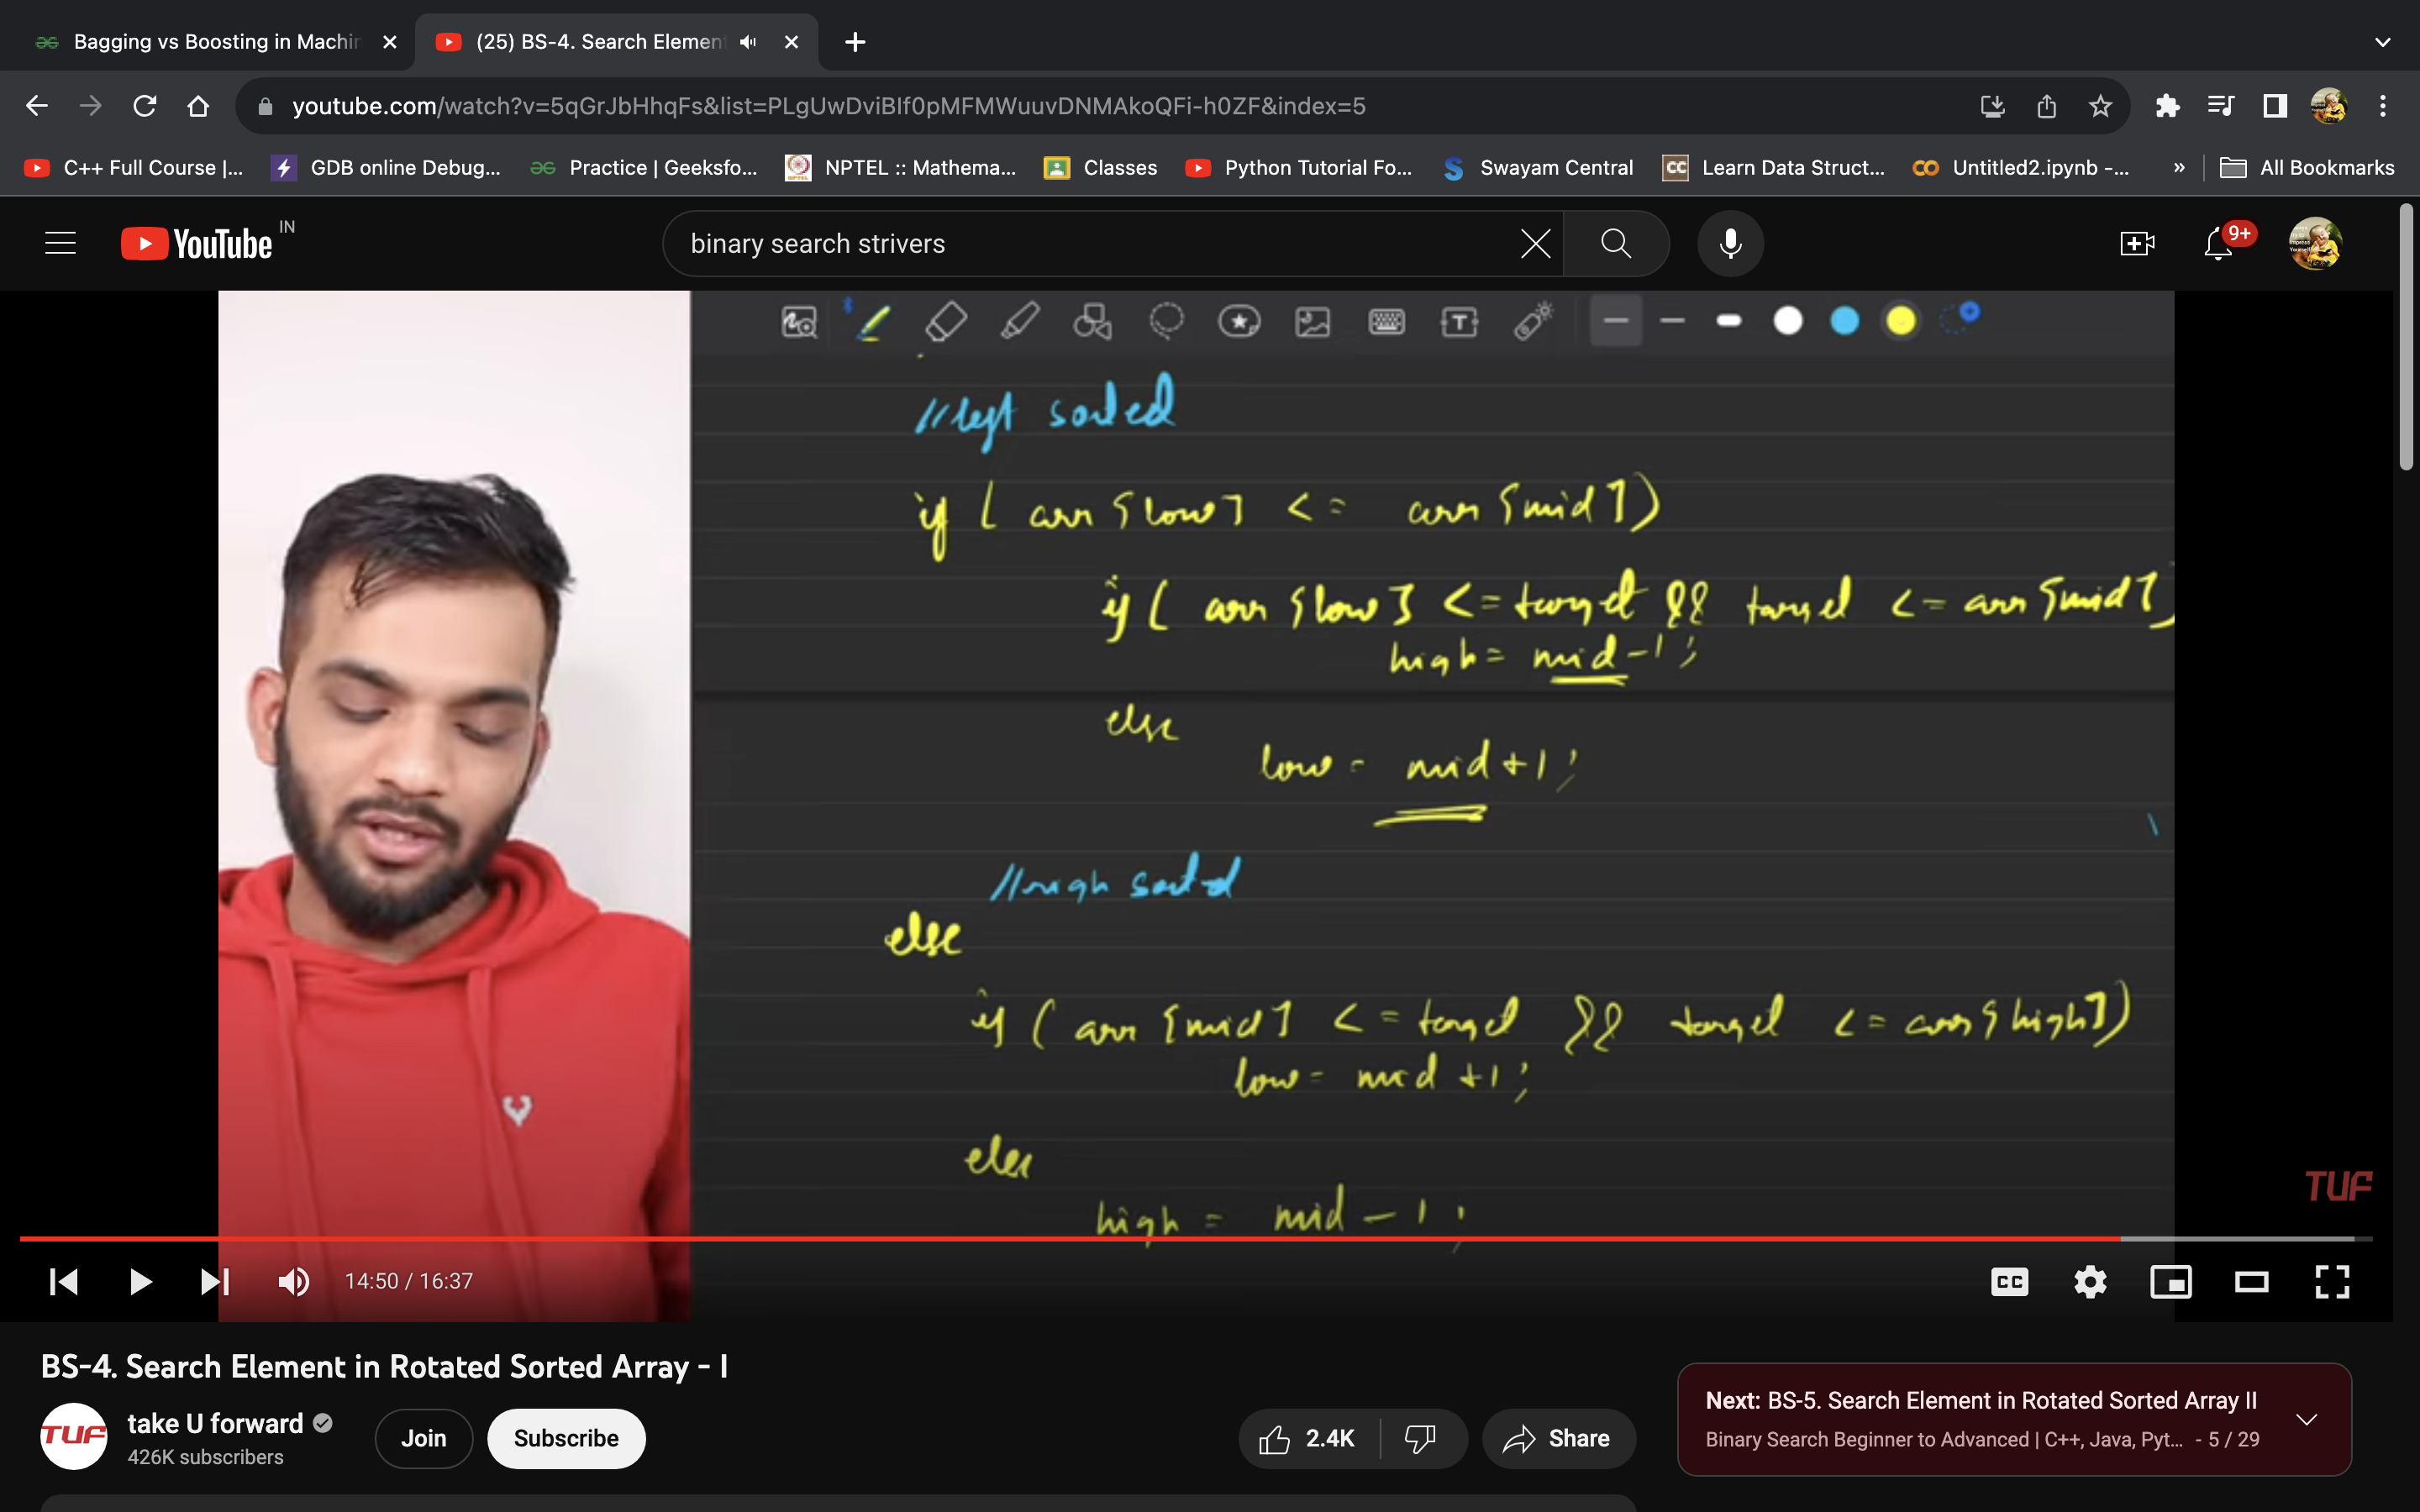 Bagging vs Boosting in Machin
(25) BS-4. Search Element
youtube.com/watch?v=5qGrJbHhqFs&list=PLgUwDviBIf0pMFMWuuvDNMAkoQFi-h0ZF&index=5
C++ Full Course |...
GDB online Debug...
Practice | Geeksfo...
NPTEL :: Mathema...
Classes
Python Tutorial Fo...
Swayam Central
CC Learn Data Struct...
CO Untitled2.ipynb -...
»
All Bookmarks
YouTube IN
binary search strivers
9+
//left sorted
if ( arr [low] <= arr [mid])
if ( arr [low] <= target && target <= arr [mid])
high = mid-1;
else
low = mid+1;
//righ sorted
else
if ( arr [mid] <= target && target <= arr [high])
low = mid +1;
else
high = mid - 1;
TUF
14:50 / 16:37
CC
BS-4. Search Element in Rotated Sorted Array - I
TUF
take U forward
426K subscribers
Join
Subscribe
2.4K
Share
Next: BS-5. Search Element in Rotated Sorted Array II
Binary Search Beginner to Advanced | C++, Java, Pyt... - 5 / 29